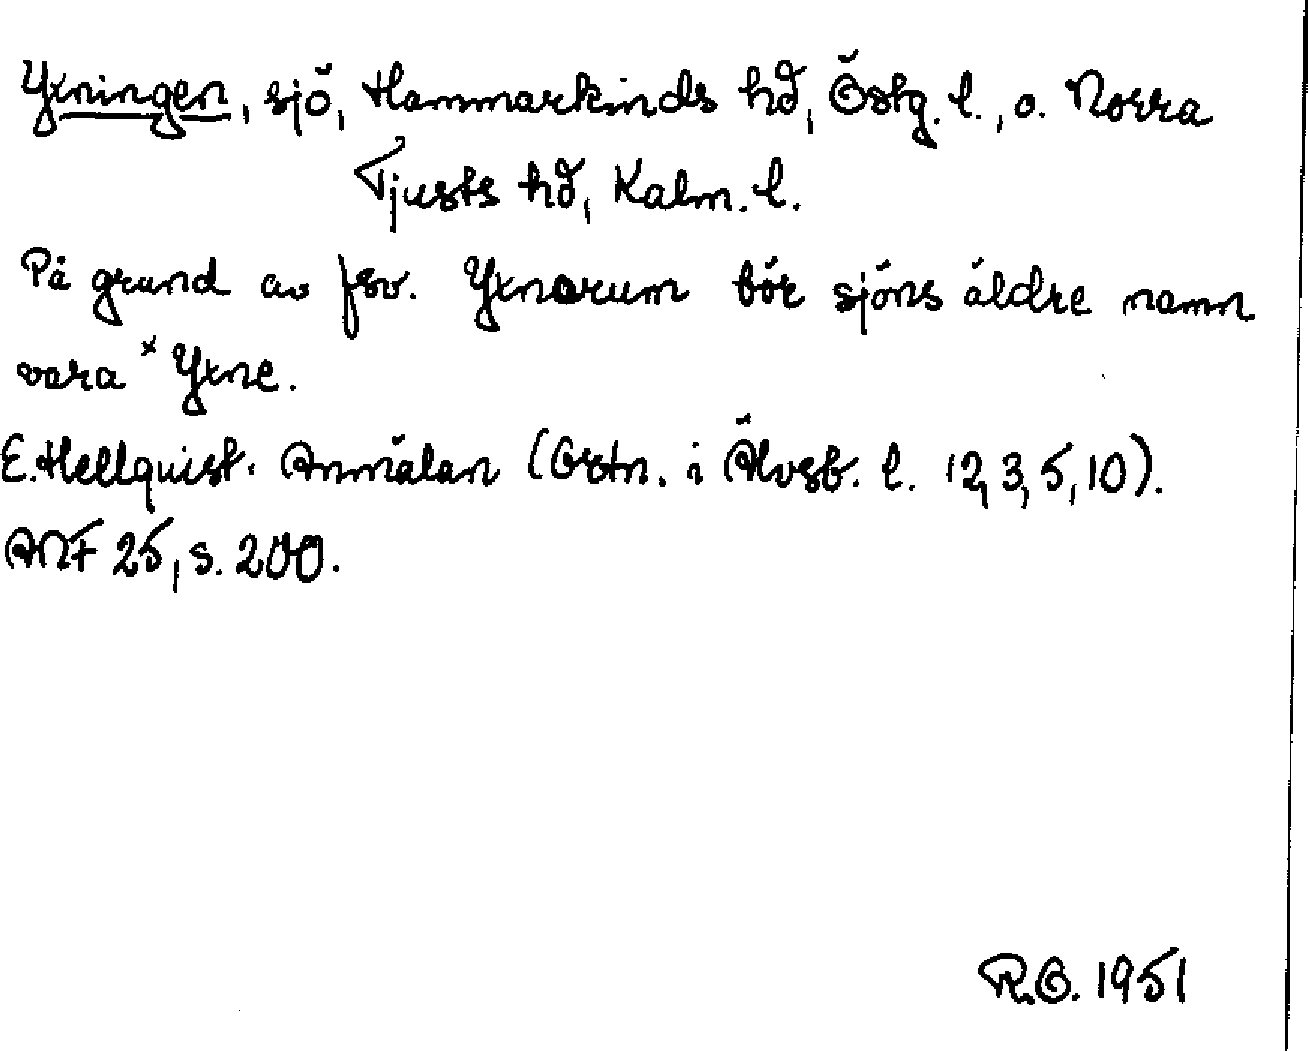 Yxningen, sjö, Hammarkinds hd, Östg. l., o. Norra
Tjusts hd, Kalm. l.
På grund av fsv. Yxnarum bör sjöns äldre namn
vara *Yxne.
E. Hellquist. Anmälan (Ortn. i Älvsb. l. 12, 3, 5, 10).
ANF 25, s. 200.
R.O. 1951